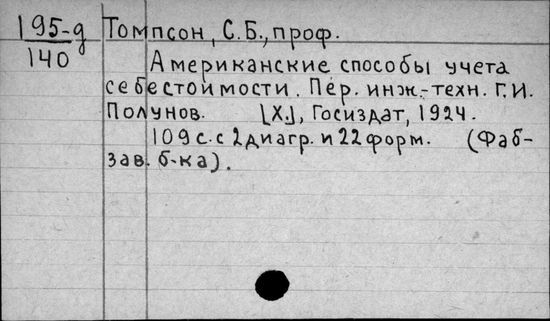 195-д Томпсон, С.Б., проф.
140
Американские способы учета
себестоимости. Пер. инж.-техн. Г.И.
Полунов. [Х.], Госиздат, 1924.
109 с. с 2 диагр. и 22 форм. (Фаб-
зав. б-ка).